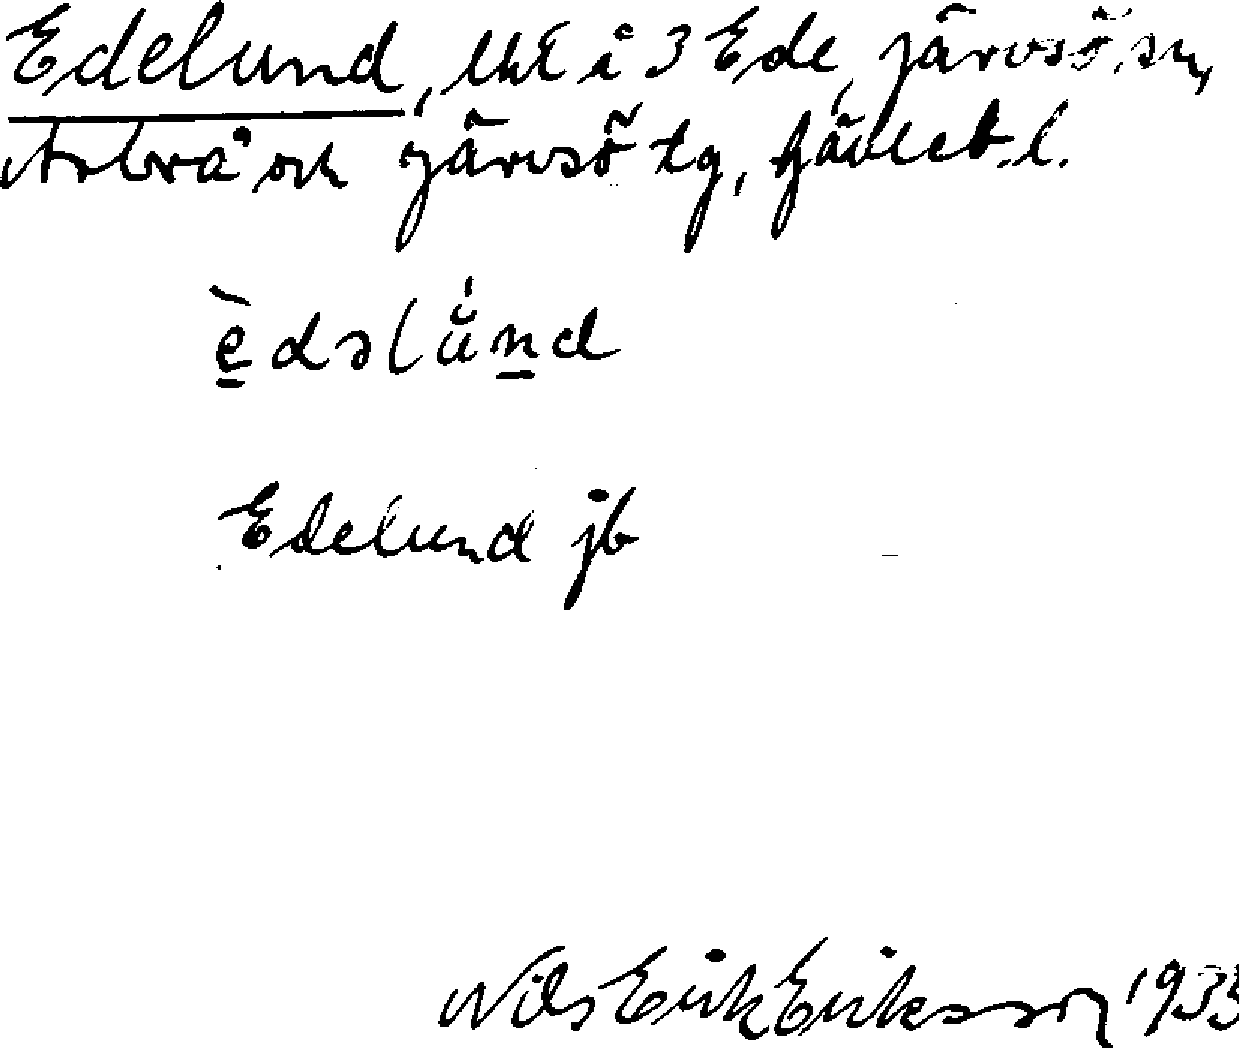 Edelund, lht i 3 Ede, Järvsö sn,
Arbrå och Järvsö tg, Gävleb. l.
èdəlúnd
Edelund jb
Nils Erik Eriksson 1935